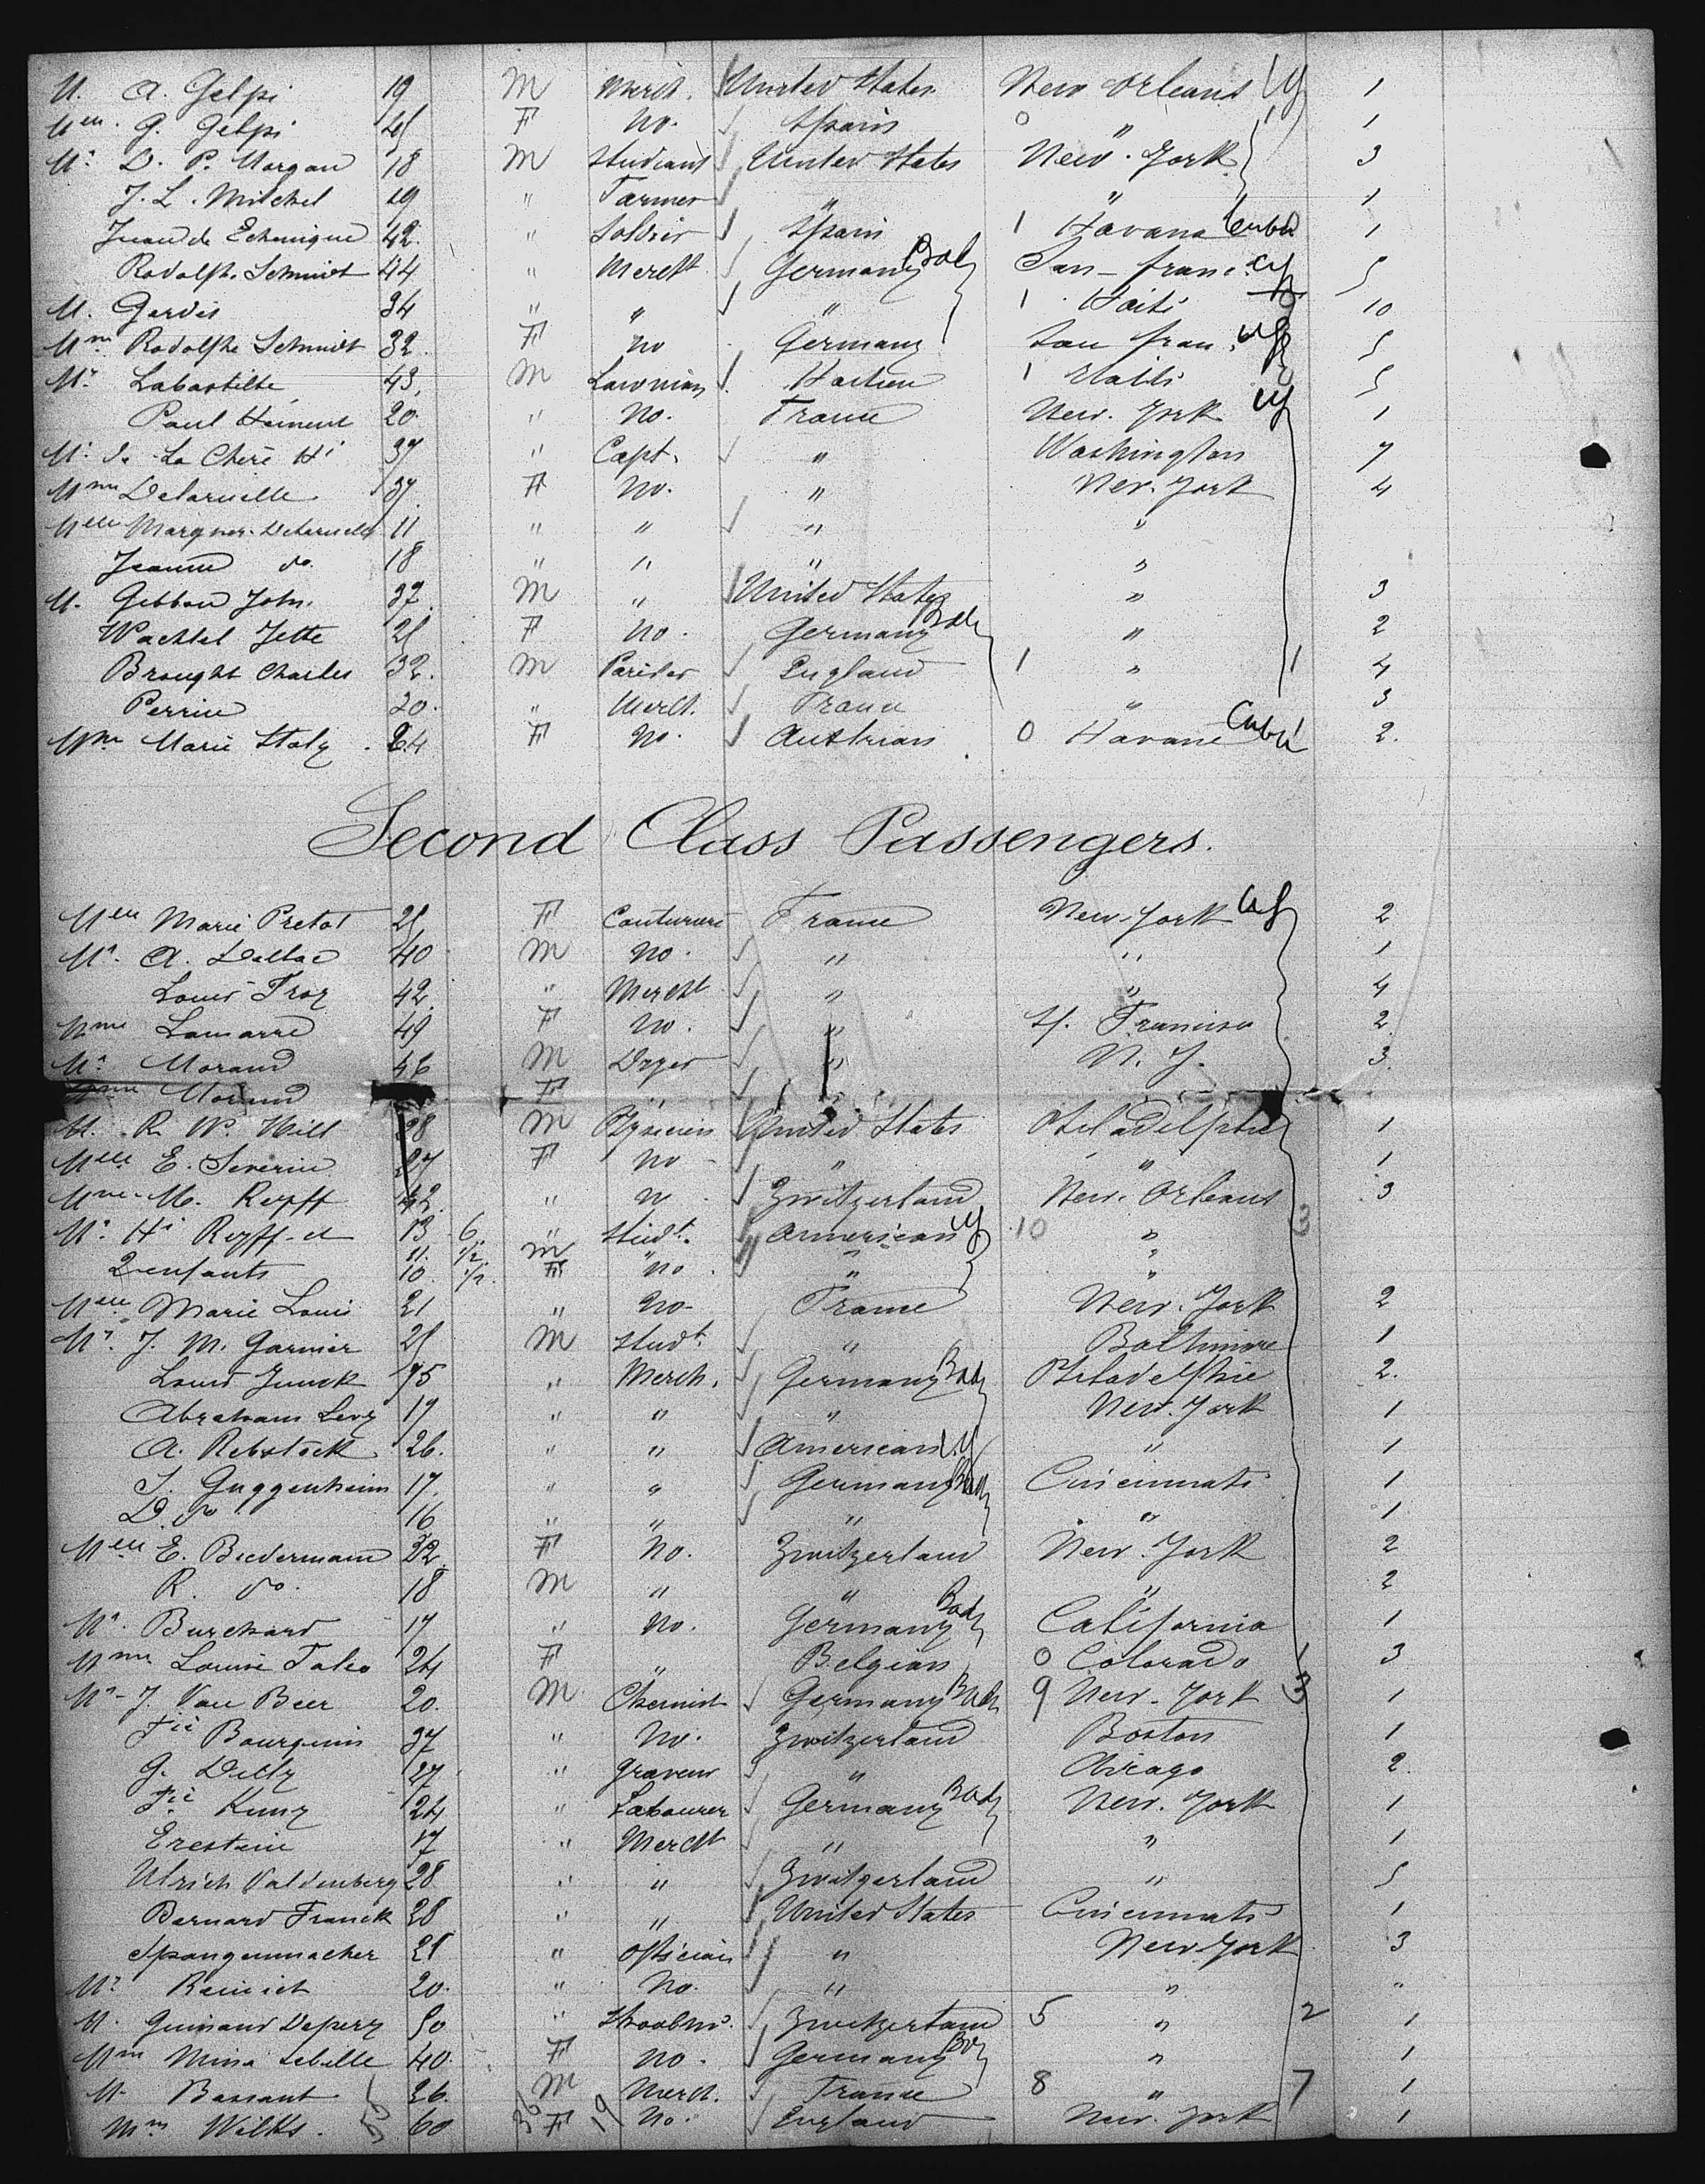 M. A. Gelpi 19 M Merch. United States New Orleans 1
G. Gelpi F No. Spain " 1
Mr. D. P. Morgan 18 M Studiant United States New-York 3
J. L. Mitchel 29 " Farmer " " 1
Juan de Echenique 42. " Soldier Spain 1 Havana Cuba 1
Rodolph. Schmidt 44 " Mercht. Germany Bad San-franc. 5
M. Gerdes 34 " " " 1 Haiti 10
Mme Rodolphe Schmidt 32. F No Germany San fran. 5
Mr. Labastille 43. M Lawman Haitien 1 Haiti 5
Paul 20. " No. France New. York 1
Mr. de La Cheré Hi 37 " Capt. " Washington 7
Mme Delaruelle 37. F No. " New-York 4
Melle Margner. Delaruelle 11 " " " "
Jeanne do. 18 " " " "
M. Gibbon John. 37. M " United States " 3
Wachtel Jette F No. Germany Bad " 2
Brought Charles 32. M England 1 " 1 4
Perrin 30. " Mercht. France " 3
Mme Marie Staly. 24 F No. Austrian 0 Havane Cuba 2.
Second Class Passengers.
Melle Marie Pretot F Couturiere France New-York 2
Mr. A. Dallac 40 M No. " " 1
Louis Troy 42. " Mercht " " 4
Mme Lamarre 49 F No. " S. Francisco 2.
Mr. Morand 46 M Dyer " N. Y. 3.
Mme Morand F " "
M. R. W. Hill 28 M United States Philadelphie 1
Melle E. Severin 27 F No " " 1
Mme M. Reyff 42. " No. Zwitzerland New. Orleans 3
Mr. Hi Reyff et 13 6 " Studt. American 10 " 3
2 enfants 11. 10. 1/2 1/2. M F " No. " "
Melle Marie Louis 21 " No- France New. York 2
Mr. J. M. Garnier M Studt. " Baltimore 1
Louis Junck " Merch. Germany Bad Philadelphie 2.
Abraham Levy 19 " " " New. York 1
A. Rebstock 26. " " American " 1
S. Guggenheim 17. " " Germany Bad Cincinnati 1
D. do 16 " " " " 1
Melle E. Biedermann 22. F No. Zwitzerland New. York 2
R. do. 18 M " " " 2
Mr. Burchard 17 " No. Germany Bad California 1
Mme Louise Talco 24 F " Belgian 0 Colorado 1 3
Mr- J. Van Beer 20. M. Chemist Germany Bad 9 New-York 3 1
Bourquin 37 " No. Zwitzerland Boston 1
G. Dilly 27 " graveur " Chicago 2.
Kunz 24 " Labourer Germany Bad New. York 1
Erestein 17 " Mercht " " 1
Ulrich Valdenberg 28 " " Zwitzerland " 5
Bernard Franck 28 " " United States Cincinnati 1
Spangenmacher " Optician " New York 3
Mr. 20. " No. " " "
M. Guinand Depery 50 " Zwitzerland 5 " 2 1
Mme Mina Lebelle 40. F No. Germany " 1
M. Bassant 26. M Merch. France 8 " 7 1
Mme Wilks. 60 36 F 19 No. England New. York 1